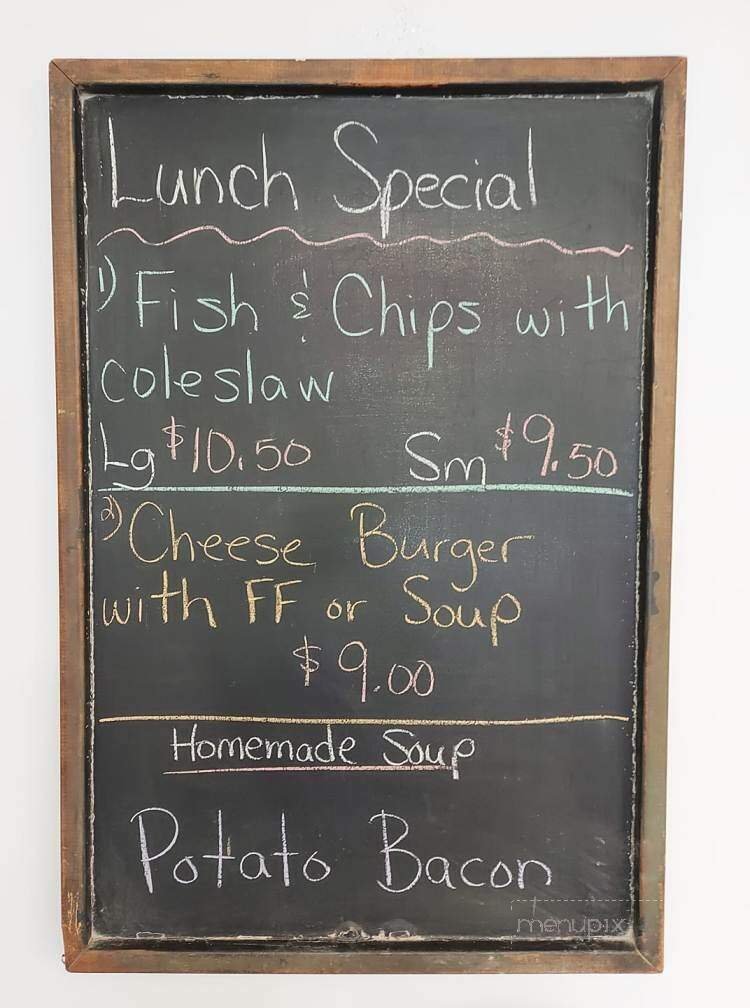 Lunch Special
1) Fish & Chips with
coleslaw
Lg $10.50 Sm $9.50
2) Cheese Burger
with FF or Soup
$9.00
Homemade Soup
Potato Bacon
menupix